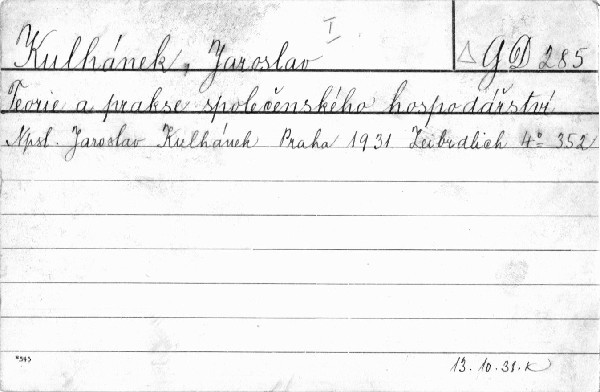 I
Kulhánek, Jaroslav △ GD 285
Teorie a prakse společenského hospodářství
Npsl. Jaroslav Kulhánek Praha 1931 Leibrdlich 4° 352
13.10.31.K